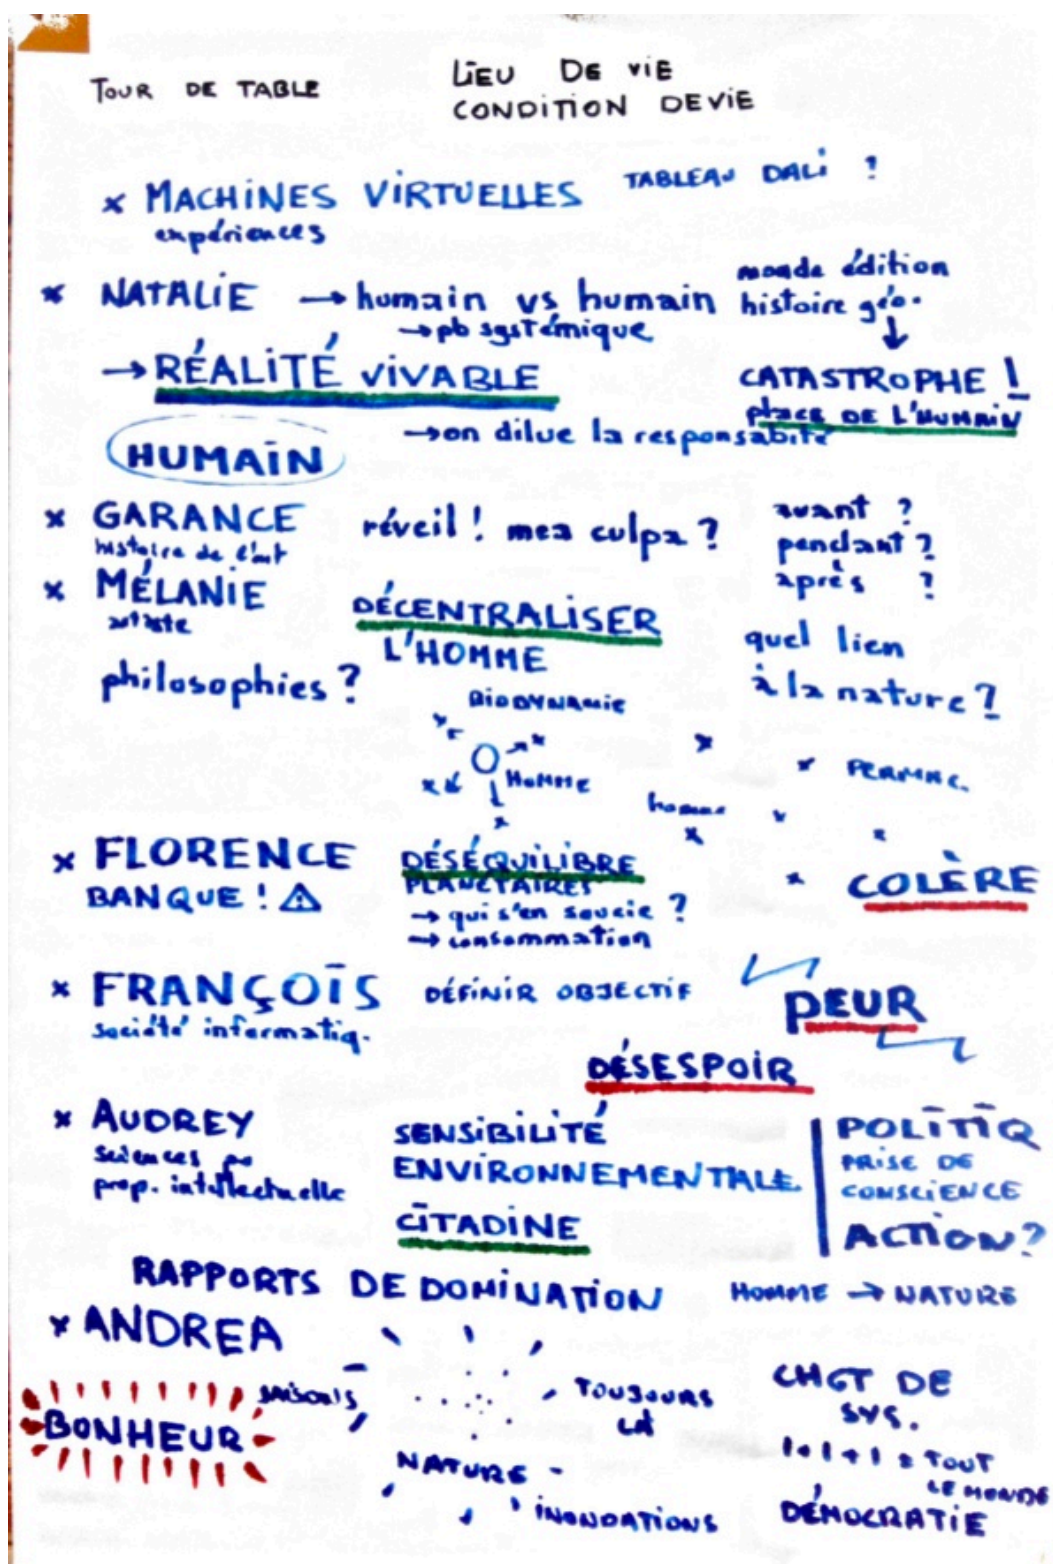 TOUR DE TABLE
LIEU DE VIE
CONDITION DE VIE
x MACHINES VIRTUELLES TABLEAU DALI ?
expériences
x NATALIE → humain vs humain
→ pb systémique
monde édition
histoire géo.
↓
CATASTROPHE !
place DE L'HUMAIN
→ RÉALITÉ VIVABLE
→ on dilue la responsabité
HUMAIN
x GARANCE réveil ! mea culpa ?
histoire de l'art
avant ?
pendant ?
après ?
x MÉLANIE
artiste
DÉCENTRALISER
L'HOMME
quel lien
à la nature ?
philosophies ?
BIODYNAMIE
HOMME
homme
PERMAC.
x FLORENCE
BANQUE ! ⚠
DÉSÉQUILIBRE
PLANÉTAIRES
→ qui s'en soucie ?
→ consommation
COLÈRE
x FRANÇOIS DÉFINIR OBJECTIF
société informatiq.
PEUR
DÉSESPOIR
x AUDREY
sciences po
prop. intellectuelle
SENSIBILITÉ
ENVIRONNEMENTALE
CITADINE
POLITIQ
PRISE DE
CONSCIENCE
ACTION ?
RAPPORTS DE DOMINATION HOMME → NATURE
x ANDREA
BONHEUR
SAISONS
TOUJOURS
LÀ
NATURE
INONDATIONS
CHGT DE
SYS.
1+1+1 = TOUT
LE MONDE
DÉMOCRATIE